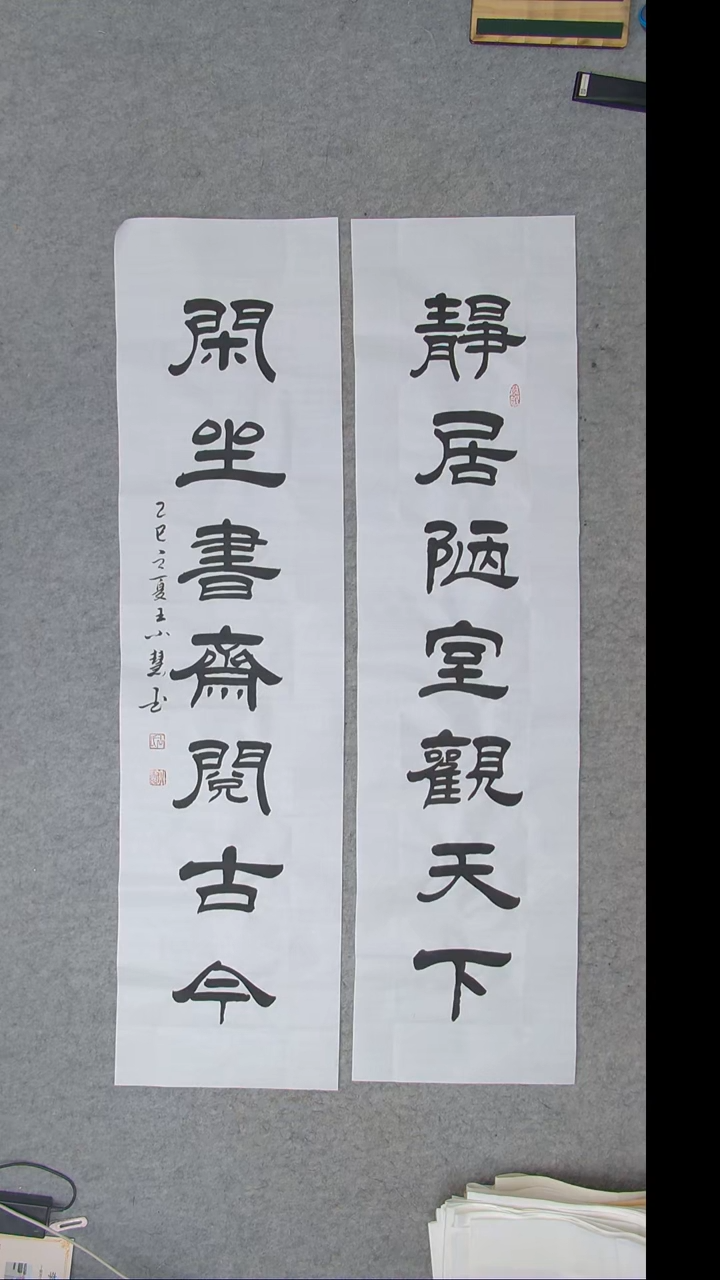 靜居陋室觀天下
閑坐書齋閱古今
乙巳立夏王小慧书